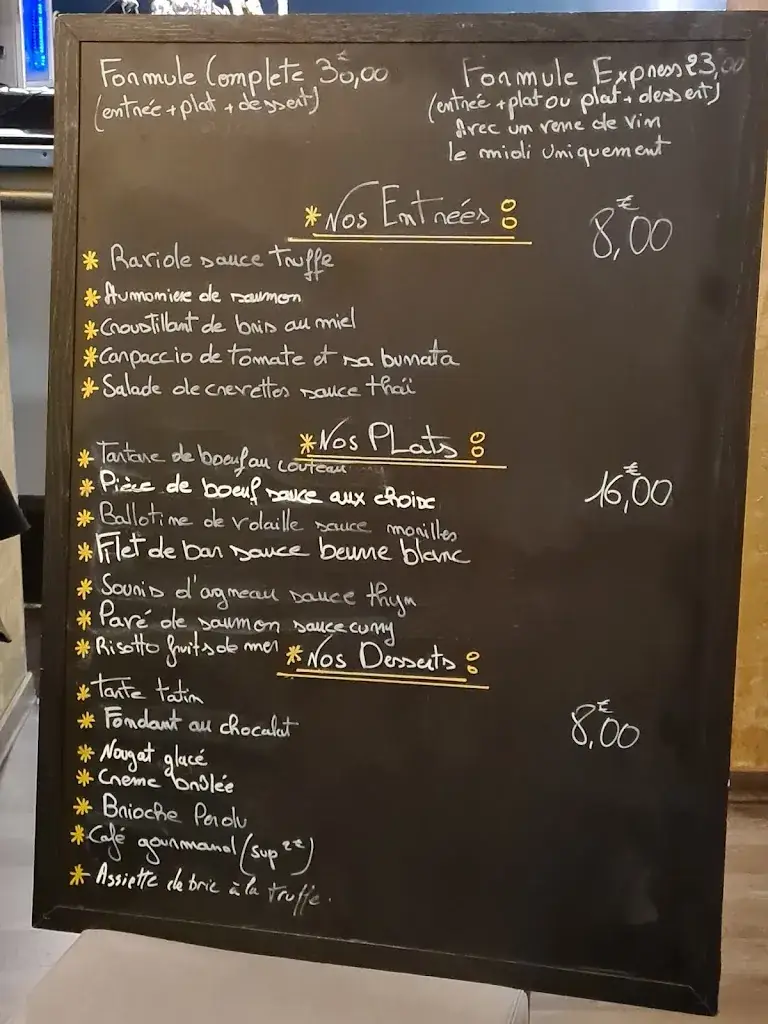 Formule Complete 30,00€
(entrée + plat + dessert)
Formule Express 23,00
(entrée + plat ou plat + dessert)
Avec un verre de vin
le midi uniquement
* Nos Entrées :
8,00€
* Raviole sauce truffe
* Aumoniere de saumon
* Croustillant de brie au miel
* Carpaccio de tomate et sa burrata
* Salade de crevettes sauce thaï
* Nos Plats :
16,00€
* Tartare de boeuf au couteau
* Pièce de boeuf sauce aux choix
* Ballotine de volaille sauce morilles
* Filet de bar sauce beurre blanc
* Souris d'agneau sauce thym
* Pavé de saumon sauce curry
* Risotto fruits de mer
* Nos Desserts :
8,00€
* Tarte tatin
* Fondant au chocolat
* Nougat glacé
* Creme brûlée
* Brioche Perdu
* Café gourmand (sup 2€)
* Assiette de brie à la truffe.